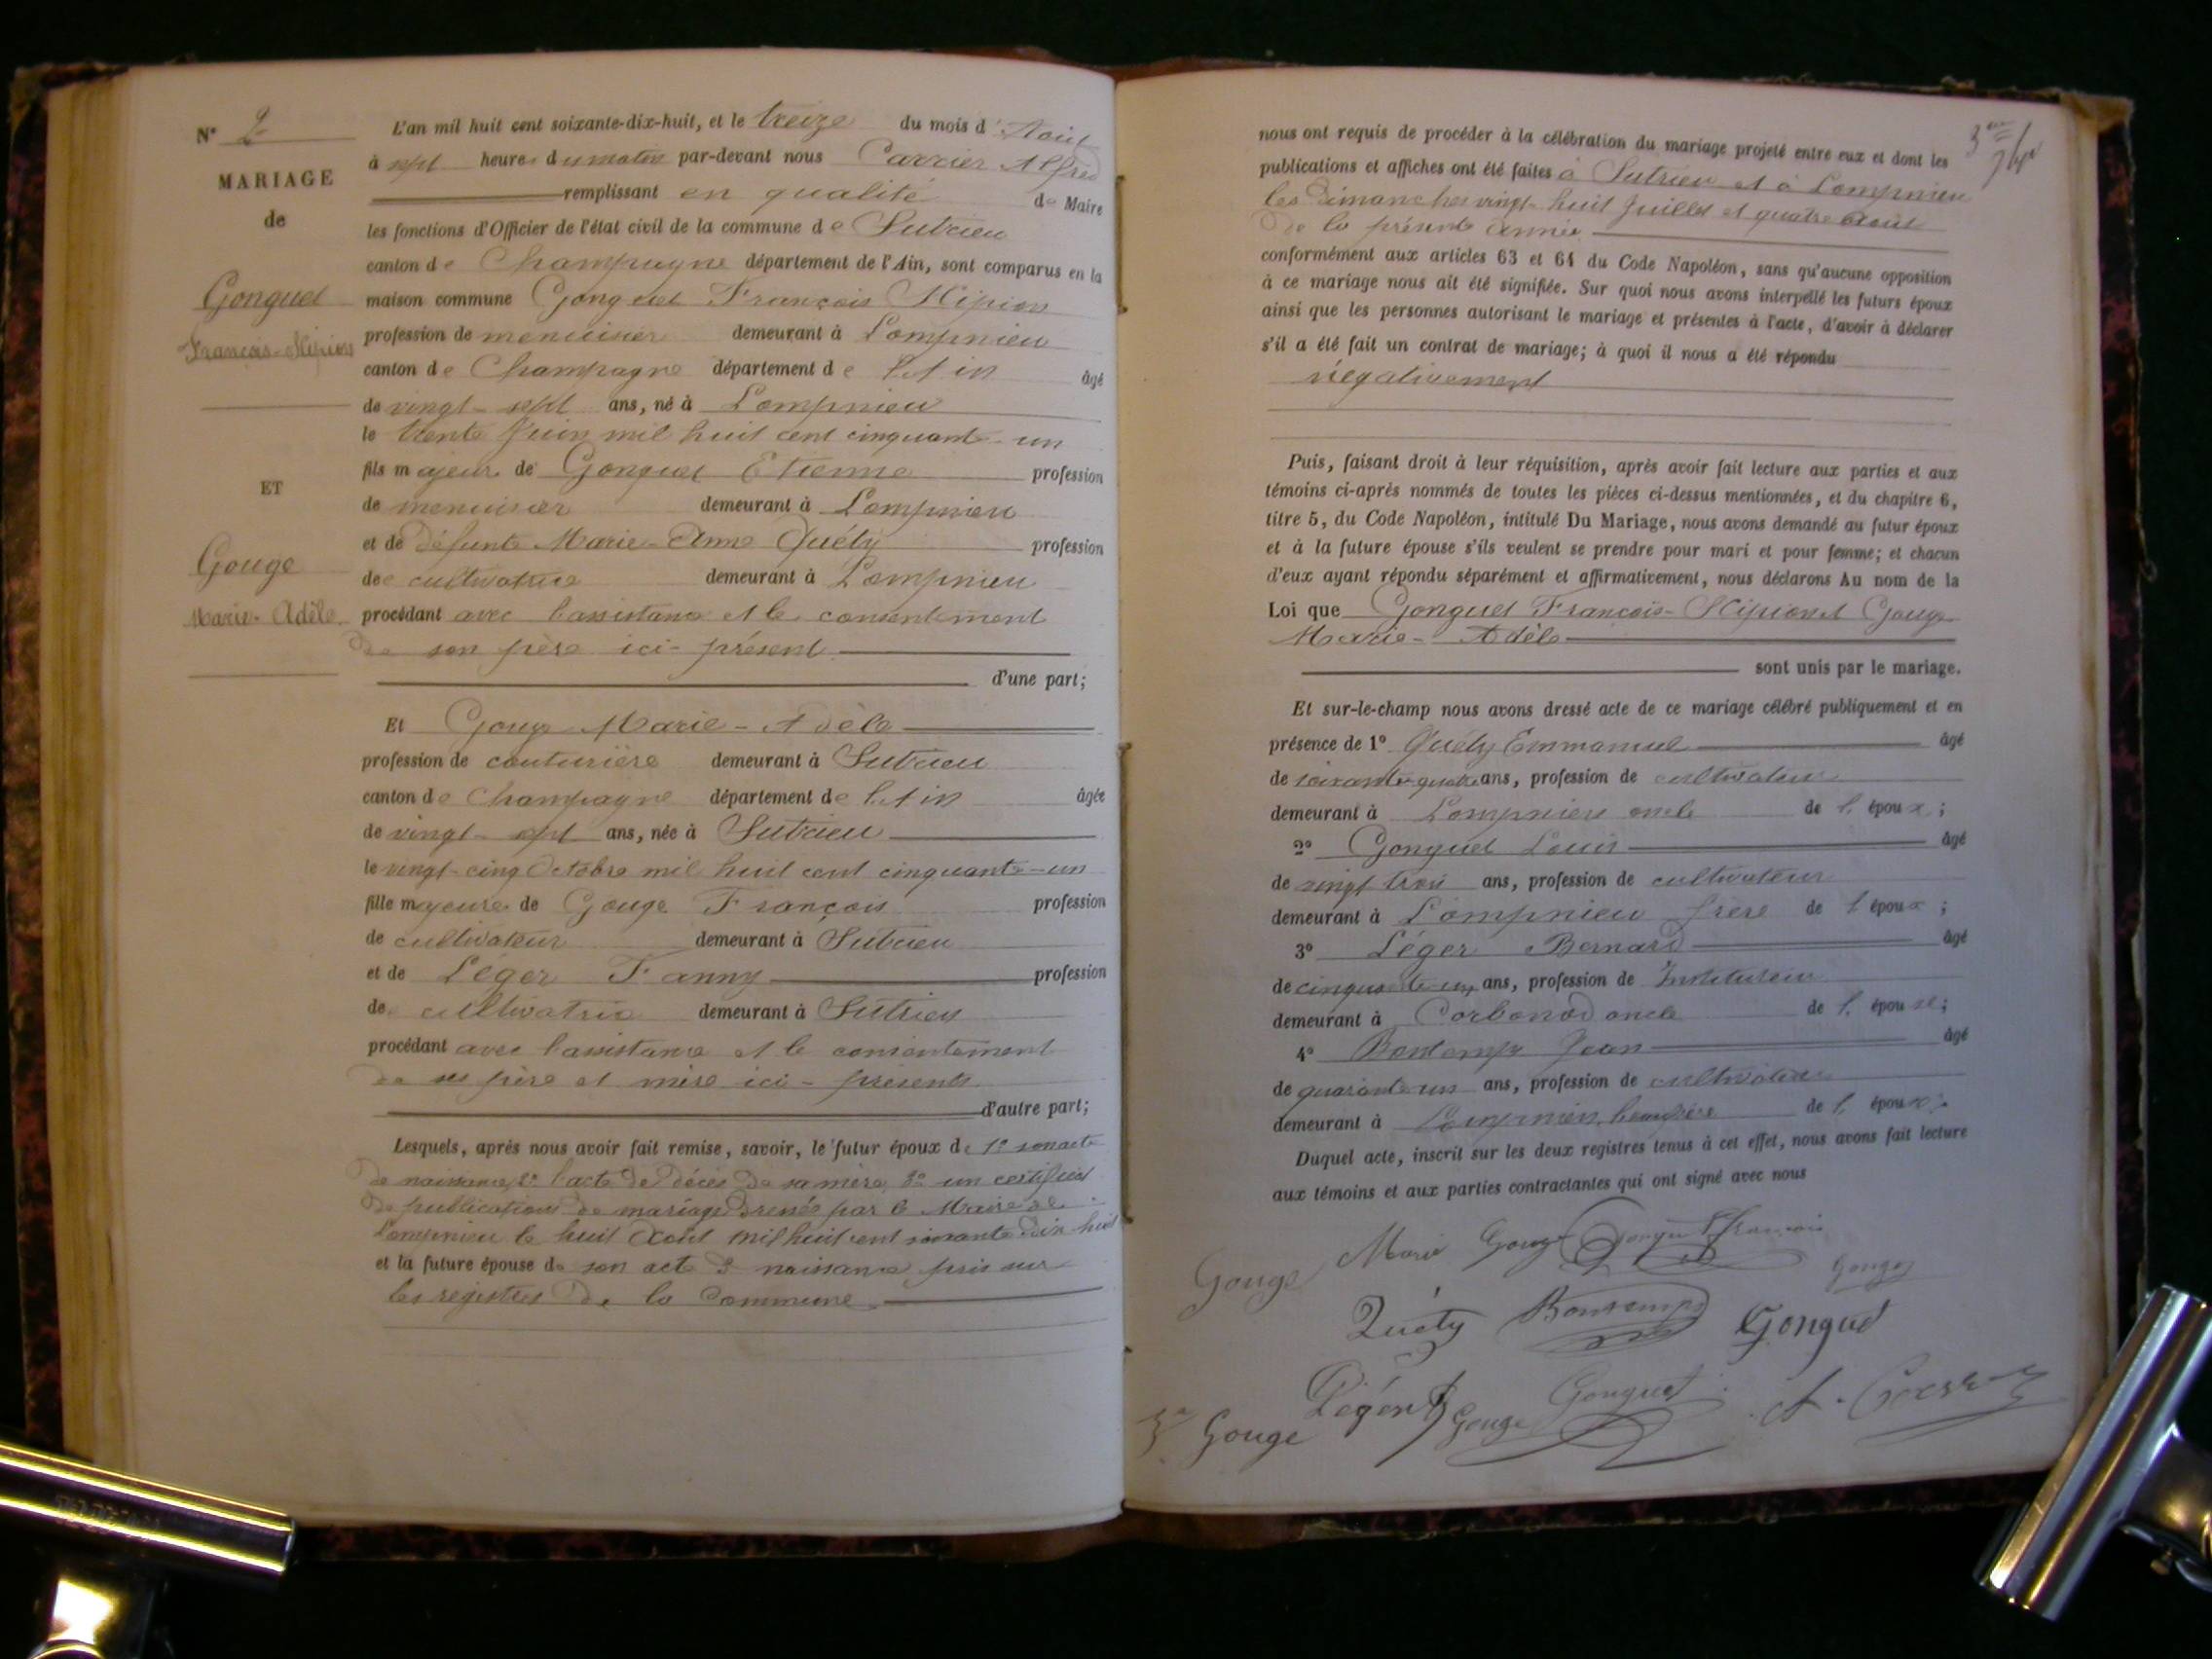 N° 2
MARIAGE
de
Gonguet
François-Scipion
ET
Gouge
Marie-Adèle
L'an mil huit cent soixante-dix-huit, et le treize du mois d'Août
à sept heures du matin par-devant nous Carrier Alfred
remplissant en qualité de Maire
les fonctions d'Officier de l'état civil de la commune de Sutrieu
canton de Champagne département de l'Ain, sont comparus en la
maison commune Gonguet François Scipion
profession de menuisier demeurant à Lompnieu
canton de Champagne département de l'Ain âgé
de vingt-sept ans, né à Lompnieu
le trente Juin mil huit cent cinquante-un
fils majeur de Gonguet Etienne profession
de menuisier demeurant à Lompnieu
et de défunte Marie-Anne Quéty profession
de cultivatrice demeurant à Lompnieu
procédant avec l'assistance et le consentement
de son père ici-présent
d'une part;
Et Gouge Marie-Adèle
profession de couturière demeurant à Sutrieu
canton de Champagne département de l'Ain âgée
de vingt-sept ans, née à Sutrieu
le vingt-cinq Octobre mil huit cent cinquante-un
fille majeure de Gouge François profession
de cultivateur demeurant à Sutrieu
et de Léger Fanny profession
de cultivatrice demeurant à Sutrieu
procédant avec l'assistance et le consentement
de ses père et mère ici-présents
d'autre part;
Lesquels, après nous avoir fait remise, savoir, le futur époux de 1° son acte
de naissance, 2° l'acte de décès de sa mère, 3° un certificat
de publications de mariage dressé par le Maire de
Lompnieu le huit Août mil huit cent soixante dix huit
et la future épouse de son acte de naissance pris sur
les registres de la Commune
nous ont requis de procéder à la célébration du mariage projeté entre eux et dont les
publications et affiches ont été faites à Sutrieu et à Lompnieu
les dimanches vingt-huit Juillet et quatre Août
de la présente année
conformément aux articles 63 et 64 du Code Napoléon, sans qu'aucune opposition
à ce mariage nous ait été signifiée. Sur quoi nous avons interpellé les futurs époux
ainsi que les personnes autorisant le mariage et présentes à l'acte, d'avoir à déclarer
s'il a été fait un contrat de mariage; à quoi il nous a été répondu
négativement
Puis, faisant droit à leur réquisition, après avoir fait lecture aux parties et aux
témoins ci-après nommés de toutes les pièces ci-dessus mentionnées, et du chapitre 6,
titre 5, du Code Napoléon, intitulé Du Mariage, nous avons demandé au futur époux
et à la future épouse s'ils veulent se prendre pour mari et pour femme; et chacun
d'eux ayant répondu séparément et affirmativement, nous déclarons Au nom de la
Loi que Gonguet François-Scipion et Gouge
Marie-Adèle
sont unis par le mariage.
Et sur-le-champ nous avons dressé acte de ce mariage célébré publiquement et en
présence de 1° Quéty Emmanuel âgé
de soixante-quatre ans, profession de cultivateur
demeurant à Lompnieu oncle de l'époux;
2° Gonguet Louis âgé
de vingt trois ans, profession de cultivateur
demeurant à Lompnieu frère de l'époux;
3° Léger Bernard âgé
de cinquante un ans, profession de Instituteur
demeurant à Corbonod oncle de l'épouse;
4° Bontemps Jean âgé
de quarante un ans, profession de cultivateur
demeurant à Lompnieu, beau frère de l'époux;
Duquel acte, inscrit sur les deux registres tenus à cet effet, nous avons fait lecture
aux témoins et aux parties contractantes qui ont signé avec nous
Marie Gouge Gonguet François
Gouge Gouge
Quéty Bontemps Gonguet
Léger B Gonguet
Gouge Gouge A. Carrier